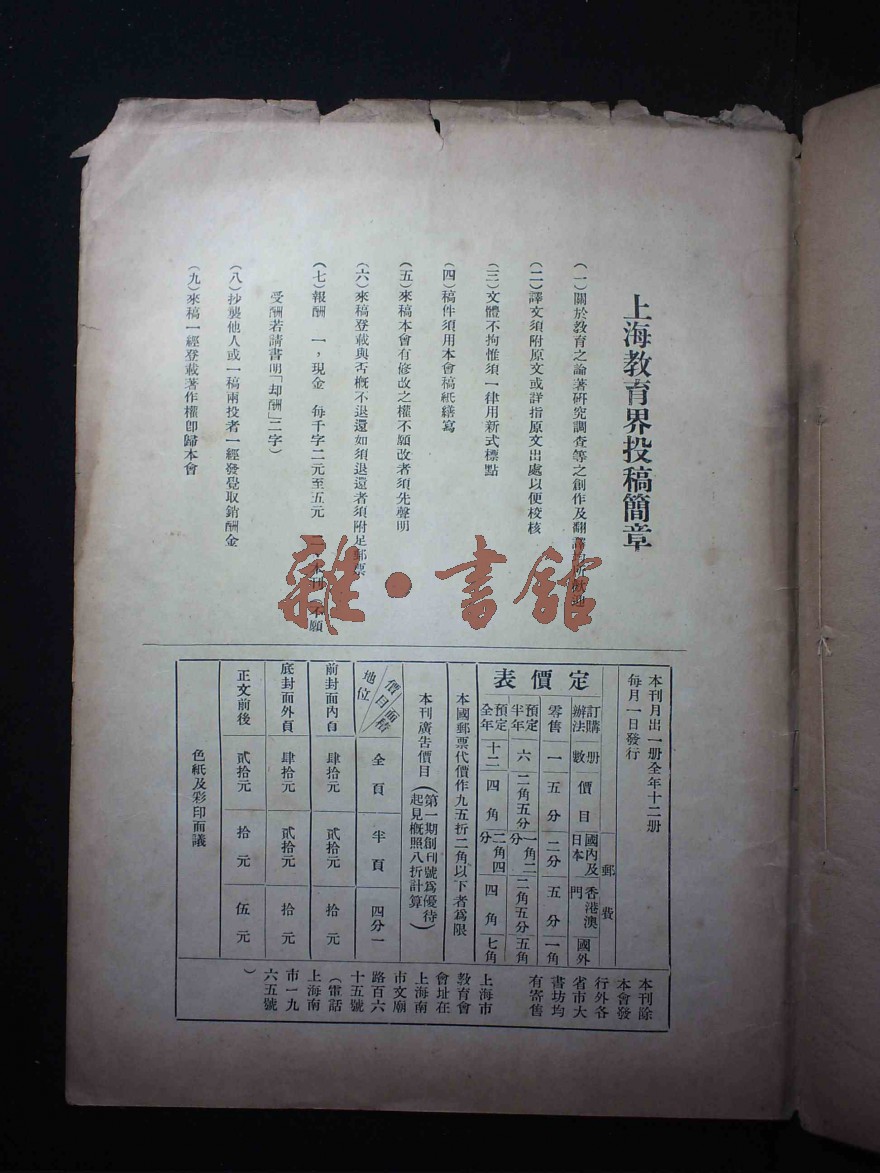 上海教育界投稿簡章
(一)關於教育之論著研究調查等之創作及翻譯均所歡迎
(二)譯文須附原文或詳指原文出處以便校核
(三)文體不拘惟須一律用新式標點
(四)稿件須用本會稿紙繕寫
(五)來稿本會有修改之權不願改者須先聲明
(六)來稿登載與否概不退還如須退還者須附足郵票
(七)報酬 一,現金 每千字二元至五元 二,本刊 不願
受酬若請書明「却酬」二字)
(八)抄襲他人或一稿兩投者一經發覺取銷酬金
(九)來稿一經登載著作權卽歸本會
雜·書館
本刊月出一册全年十二册
每月一日發行
定價表
訂購辦法 册數 價目 郵費 國內及日本 香港澳門 國外
零售 一 五分 二分 五分 一角
預定半年 六 二角五分 一角二分 二角五分 五角
預定全年 十二 四角 二角四分 四角 七角
本國郵票代價作九五折二角以下者爲限
本刊廣告價目(第一期創刊號爲優待
起見概照八折計算)
價目 面積 地位 全頁 半頁 四分一
前封面內頁 肆拾元 貳拾元 拾元
底封面外頁 肆拾元 貳拾元 拾元
正文前後 貳拾元 拾元 伍元
色紙及彩印面議
本刊除
本會發
行外各
省市大
書坊均
有寄售
上海市
教育會
會址在
上海南
市文廟
路百六
十五號
(電話
上海南
市一九
六五號
)